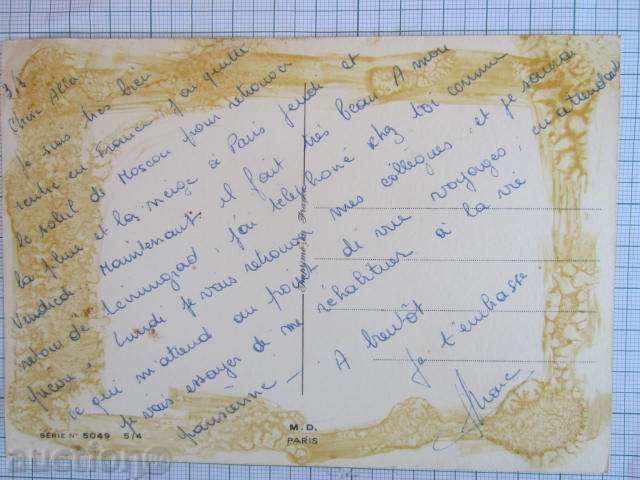 3/5
Chère Alla
Je suis très bien
rentré en France, j'ai quitté
le soleil de Moscou pour retrouver
la pluie et la neige à Paris jeudi et
Vendredi. Maintenant il fait très beau. A mon
retour de Leningrad, j'ai téléphoné chez toi comme
prévu. Lundi je vais retrouver mes collègues et je saurai
ce qui m'attend au point de vue voyages, en attendant
je vais essayer de me réhabituer à la vie
parisienne - A bientôt
Je t'embrasse
Marc
Imprimé en France
SÉRIE N° 5049 5/4
M.D.
PARIS